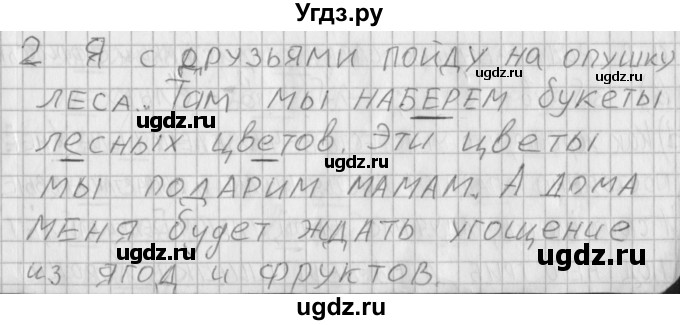 Угдз.ру
2 Я с друзьями пойду на опушку
леса. Там мы наберем букеты
лесных цветов. Эти цветы
мы подарим мамам. А дома
меня будет ждать угощение
из ягод и фруктов.
ugdz.ru
ugdz.ru
ugdz.ru
ugdz.ru
ugdz.ru
ugdz.ru
ugdz.ru
ugdz.ru
ugdz.ru